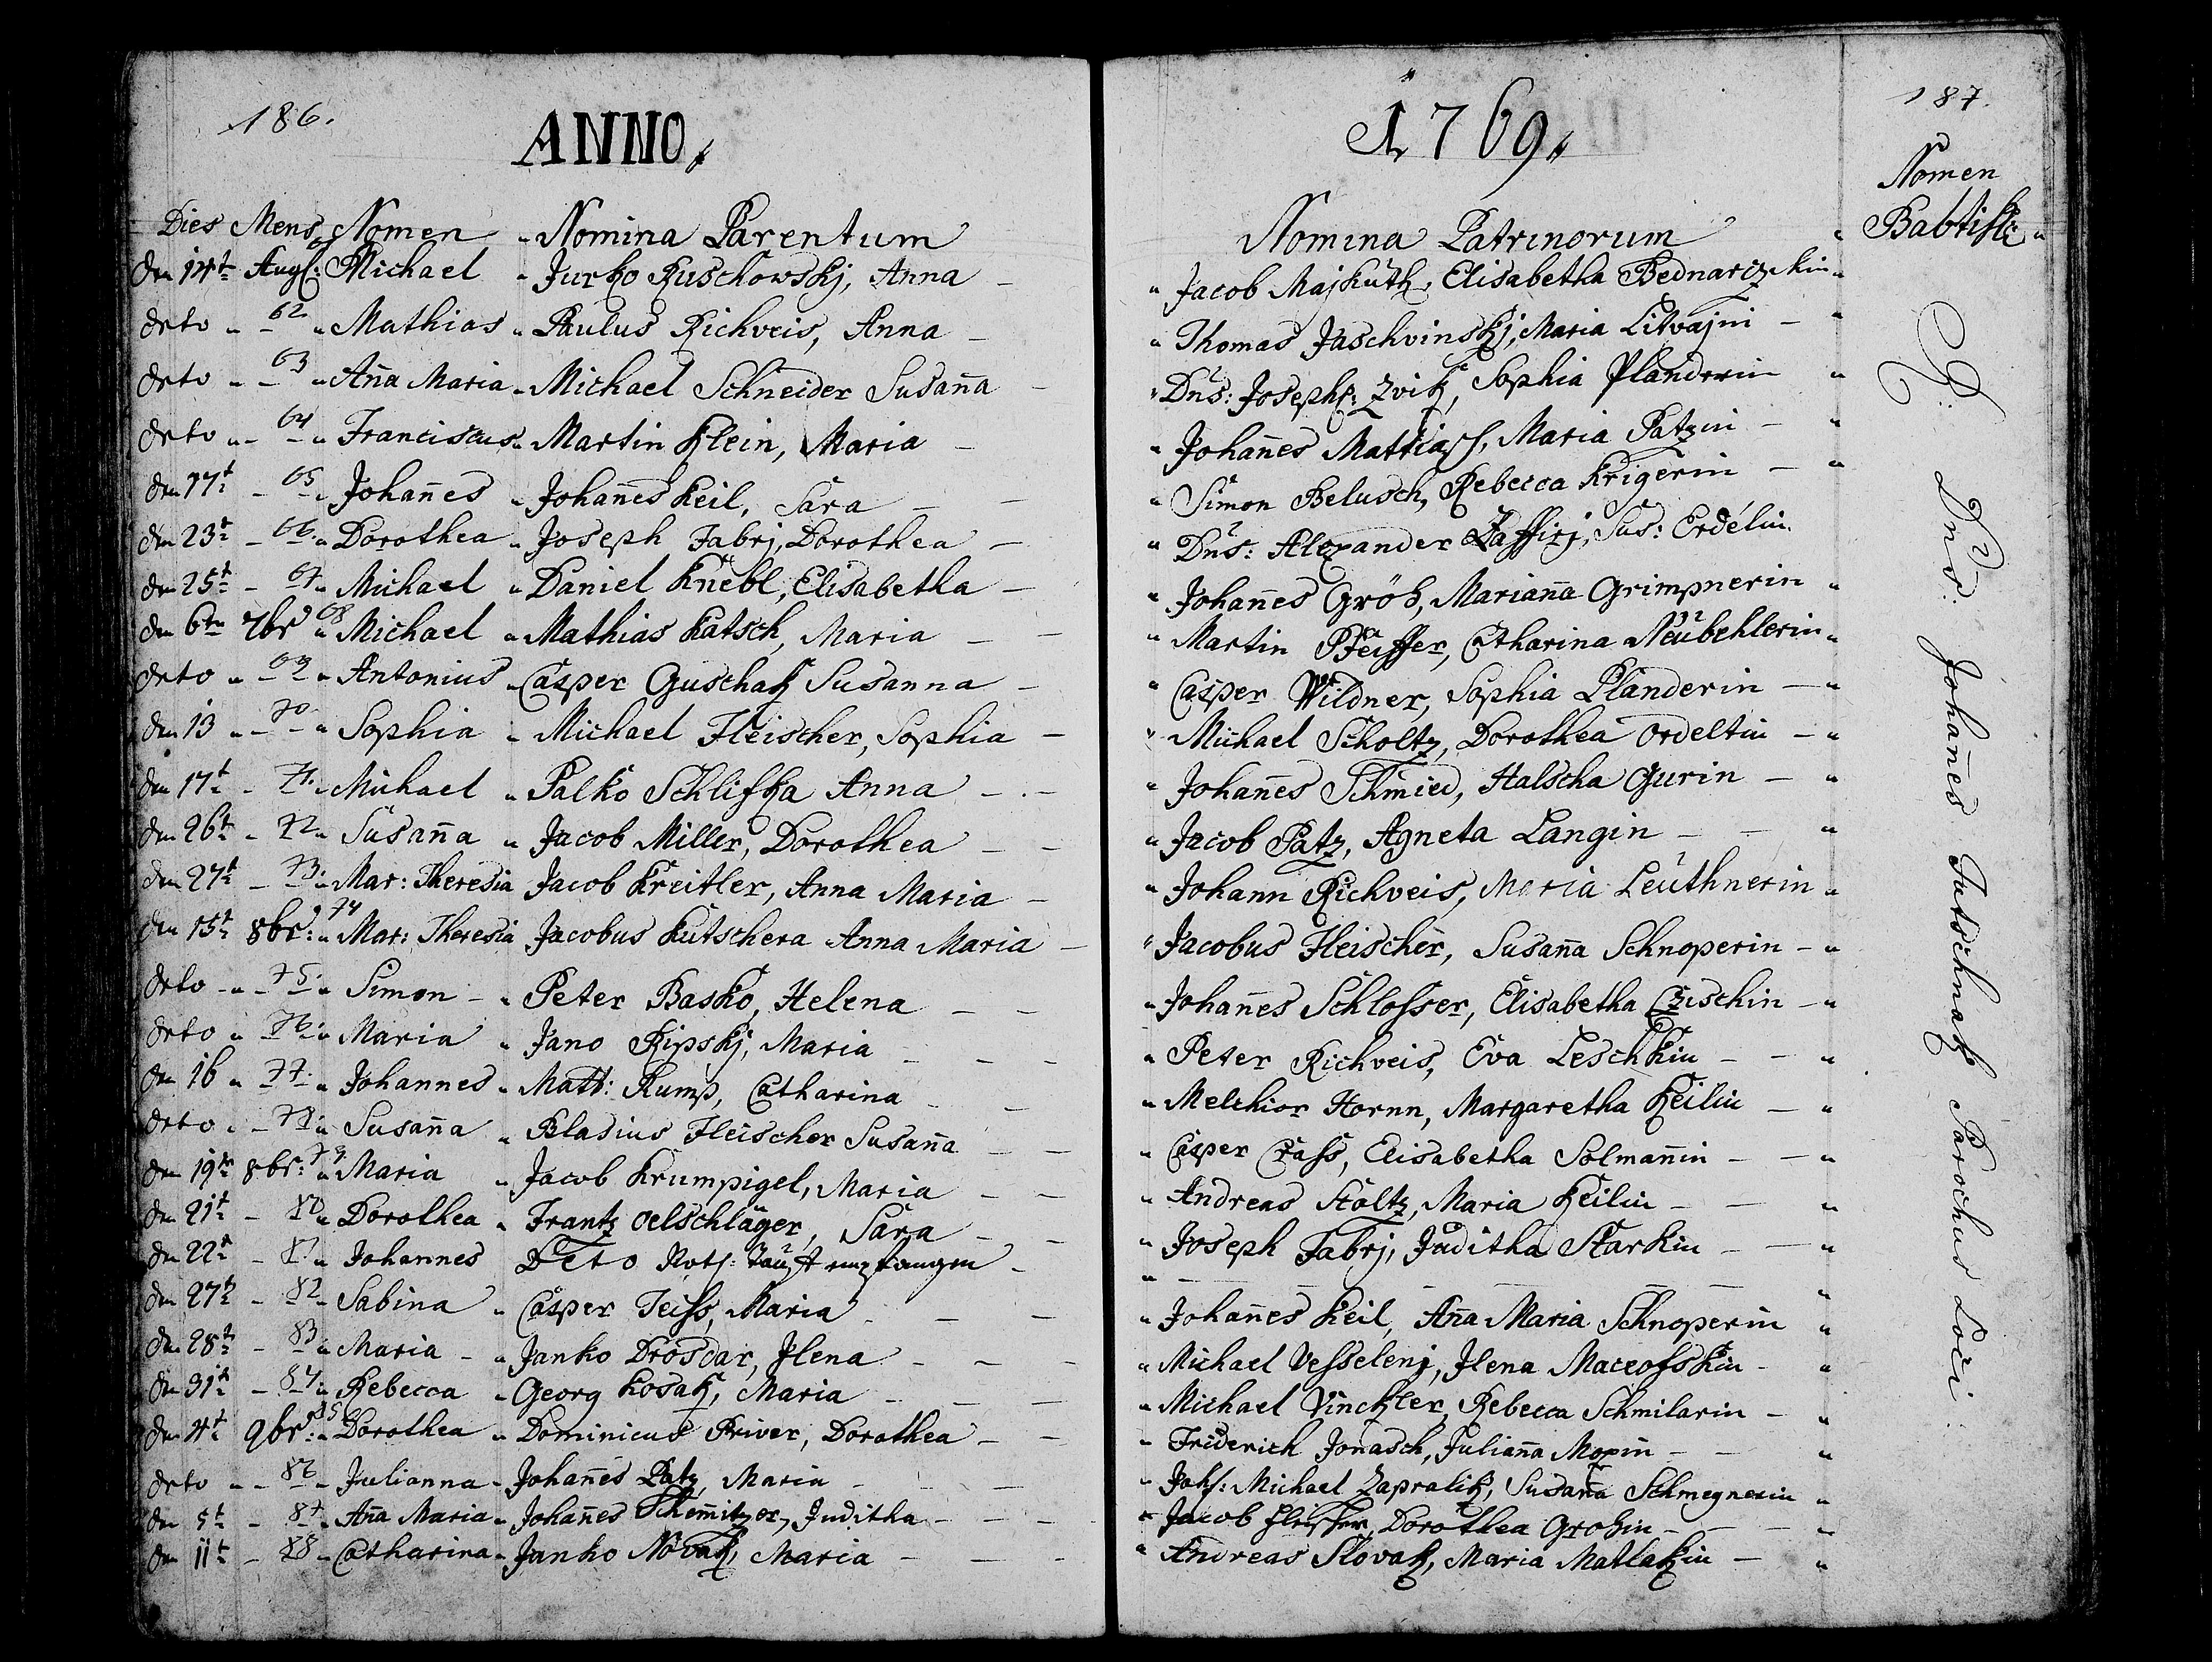 186.
ANNO.
Dies Mens Nomen " Nomina Parentum
den 14t Augs: Michael " Jurko Ruschowskj, Anna –
deto " – 62 " Mathias " Paulus Richveis, Anna –
deto " – 63 " Aña Maria " Michael Schneider Susaña –
deto " – 64 " Franciscus " Martin Klein, Maria –
den 17t – 65 " Johañes " Johañes Keil, Sara –
den 23t – 66. " Dorothea " Joseph Fabrj, Dorothea –
den 25t – 67 " Michael " Daniel Knebl, Elisabetha –
den 6ten 7br 68 " Michael " Mathias Katsch, Maria – –
deto " – 69 " Antonius " Casper Guschak Susanna –
den 13 " – 70 " Sophia " Michael Fleischer, Sophia –
den 17t – 71. " Michael " Palko Schlifka Anna – . –
den 26t – 72 " Susaña " Jacob Miller, Dorothea – –
den 27t – 73. " Mar: Theresia Jacob Kreitler, Anna Maria –
den 15t 8br: 74 " Mar: Theresia Jacobus Kutschera Anna Maria –
deto " – 75. " Simon – " Peter Basko, Helena – –
deto " 76. " Maria " Jano Ripskj, Maria – – –
den 16 " 77. " Johannes " Matt: Rump, Catharina – –
deto " – 78 " Susaña " Blasius Fleischer Susaña – –
den 19t 8br: 79. " Maria " Jacob Krumpigel, Maria – –
den 21t – 80 " Dorothea " Frantz Oelschläger, Sara – –
den 22t – 81 " Johannes Deto Noth: Tauft empfangen –
den 27t – 82 – Sabina " Casper Teiss, Maria – – –
den 28t – 83 " Maria – " Janko Drosdar, Jlena – – –
den 31t – 84. " Rebecca " Georg Kosak, Maria – – –
den 4t 9br: 85 " Dorothea " Dominicus Priver, Dorothea – –
deto " – 86 – Julianna " Johañes Patz, Maria – – –
den 5t – 87 " Aña Maria " Johañes Schemitzer, Juditha – – –
den 11t – 88 – Catharina " Janko Novak, Maria – – –
1769.
187.
Nomina Patrinorum
Nomen
Babtistæ
" Jacob Majkuth, Elisabetha Bednarizkin "
" Thomas Jaschvinskj, Maria Litvajni – "
" Dns: Josephs: Zvik, Sophia Planderin "
" Johañes Mattiass, Maria Patzin – "
" Simon Belusch, Rebecca Krigerin – "
" Dns: Alexander Zaffirj, Sus: Erdélin
" Johañes Gröh, Mariaña Grimpnerin "
" Martin Pfeiffer, Catharina Neubehlerin "
" Casper Wildner, Sophia Planderin – "
" Michael Scholtz, Dorothea Ordeltin – "
" Johañes Schmied, Halscha Gurin – "
" Jacob Patz, Agneta Langin – – "
" Johann Richveis, Maria Leuthnerin "
" Jacobus Fleischer, Susaña Schnoperin – "
" Johañes Schlosser, Elisabetha Czischin – "
" Peter Richveis, Eva Leschkin – – "
" Melchior Hornn, Margaretha Keilin – "
" Casper Crass, Elisabetha Solmañin – – "
" Andreas Stoltz, Maria Keilin – – "
" Joseph Fabrj, Juditha Starkin – – "
" – – – – – "
" Johañes Keil, Aña Maria Schnoperin "
" Michael Vesselenj, Jlena Maceofskin – "
" Michael Vinckler, Rebecca Schmilarin – "
" Friderich Jonasch, Juliaña Moxin – – "
" Johs: Michael Zapralik, Susaña Schmegnerin "
" Jacob Fleischer, Dorothea Grohin – – – "
" Andreas Slovak, Maria Matlakin – "
R: Dns: Johañes Jatschnak Parochus Loci